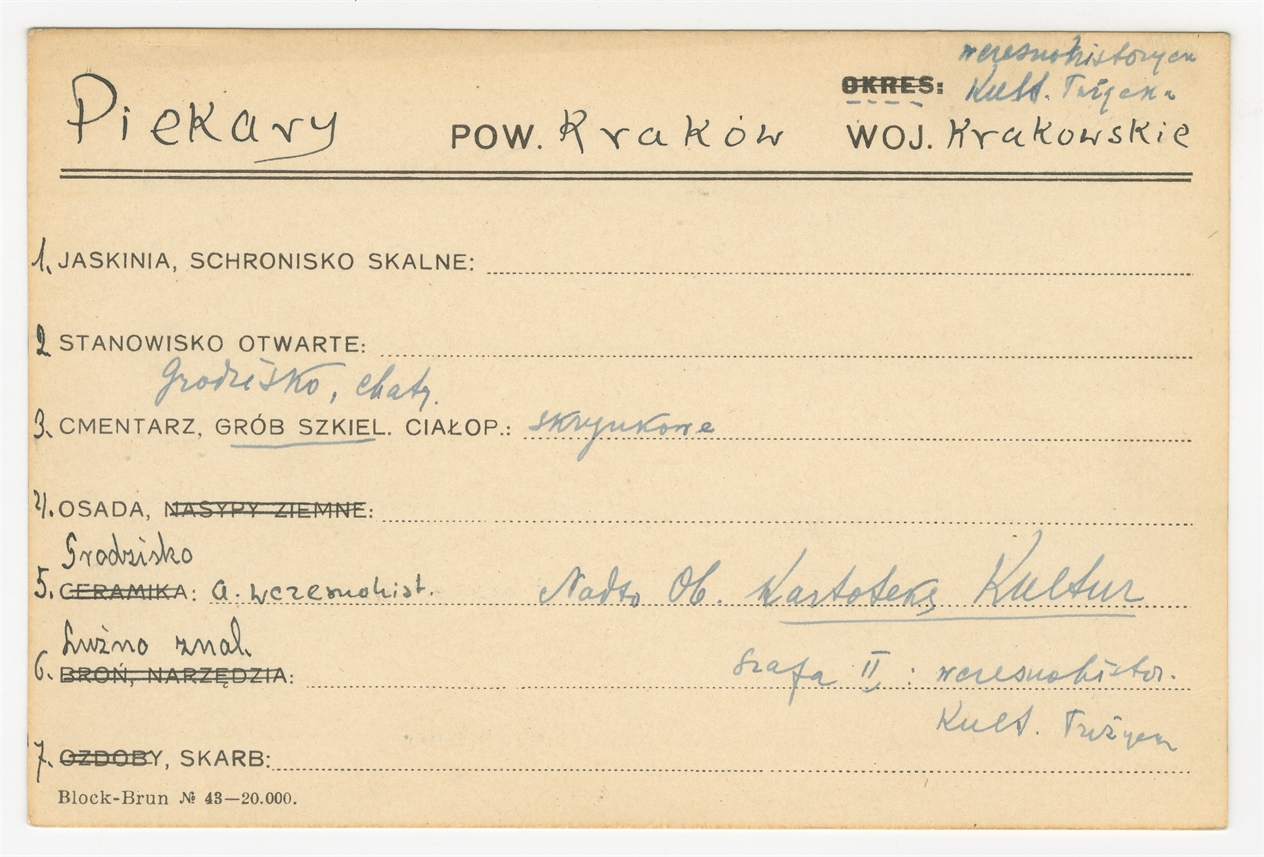 wczesnohistoryczn
OKRES: Kult. Trzyczn
Piekary POW. Kraków WOJ. Krakowskie
1. JASKINIA, SCHRONISKO SKALNE:
2 STANOWISKO OTWARTE:
Grodzisko, chaty.
3. CMENTARZ, GRÓB SZKIEL. CIAŁOP.: skrzynkowe
4. OSADA, NASYPY ZIEMNE:
Grodzisko
5. CERAMIKA: a. wczesnohist. Nadto Ob. Kartotekę Kultur
Luźno znal.
6. BROŃ, NARZĘDZIA: Szafa II: wczesnohistor.
Kult.
7. OZDOBY, SKARB:
Block-Brun № 43—20.000.